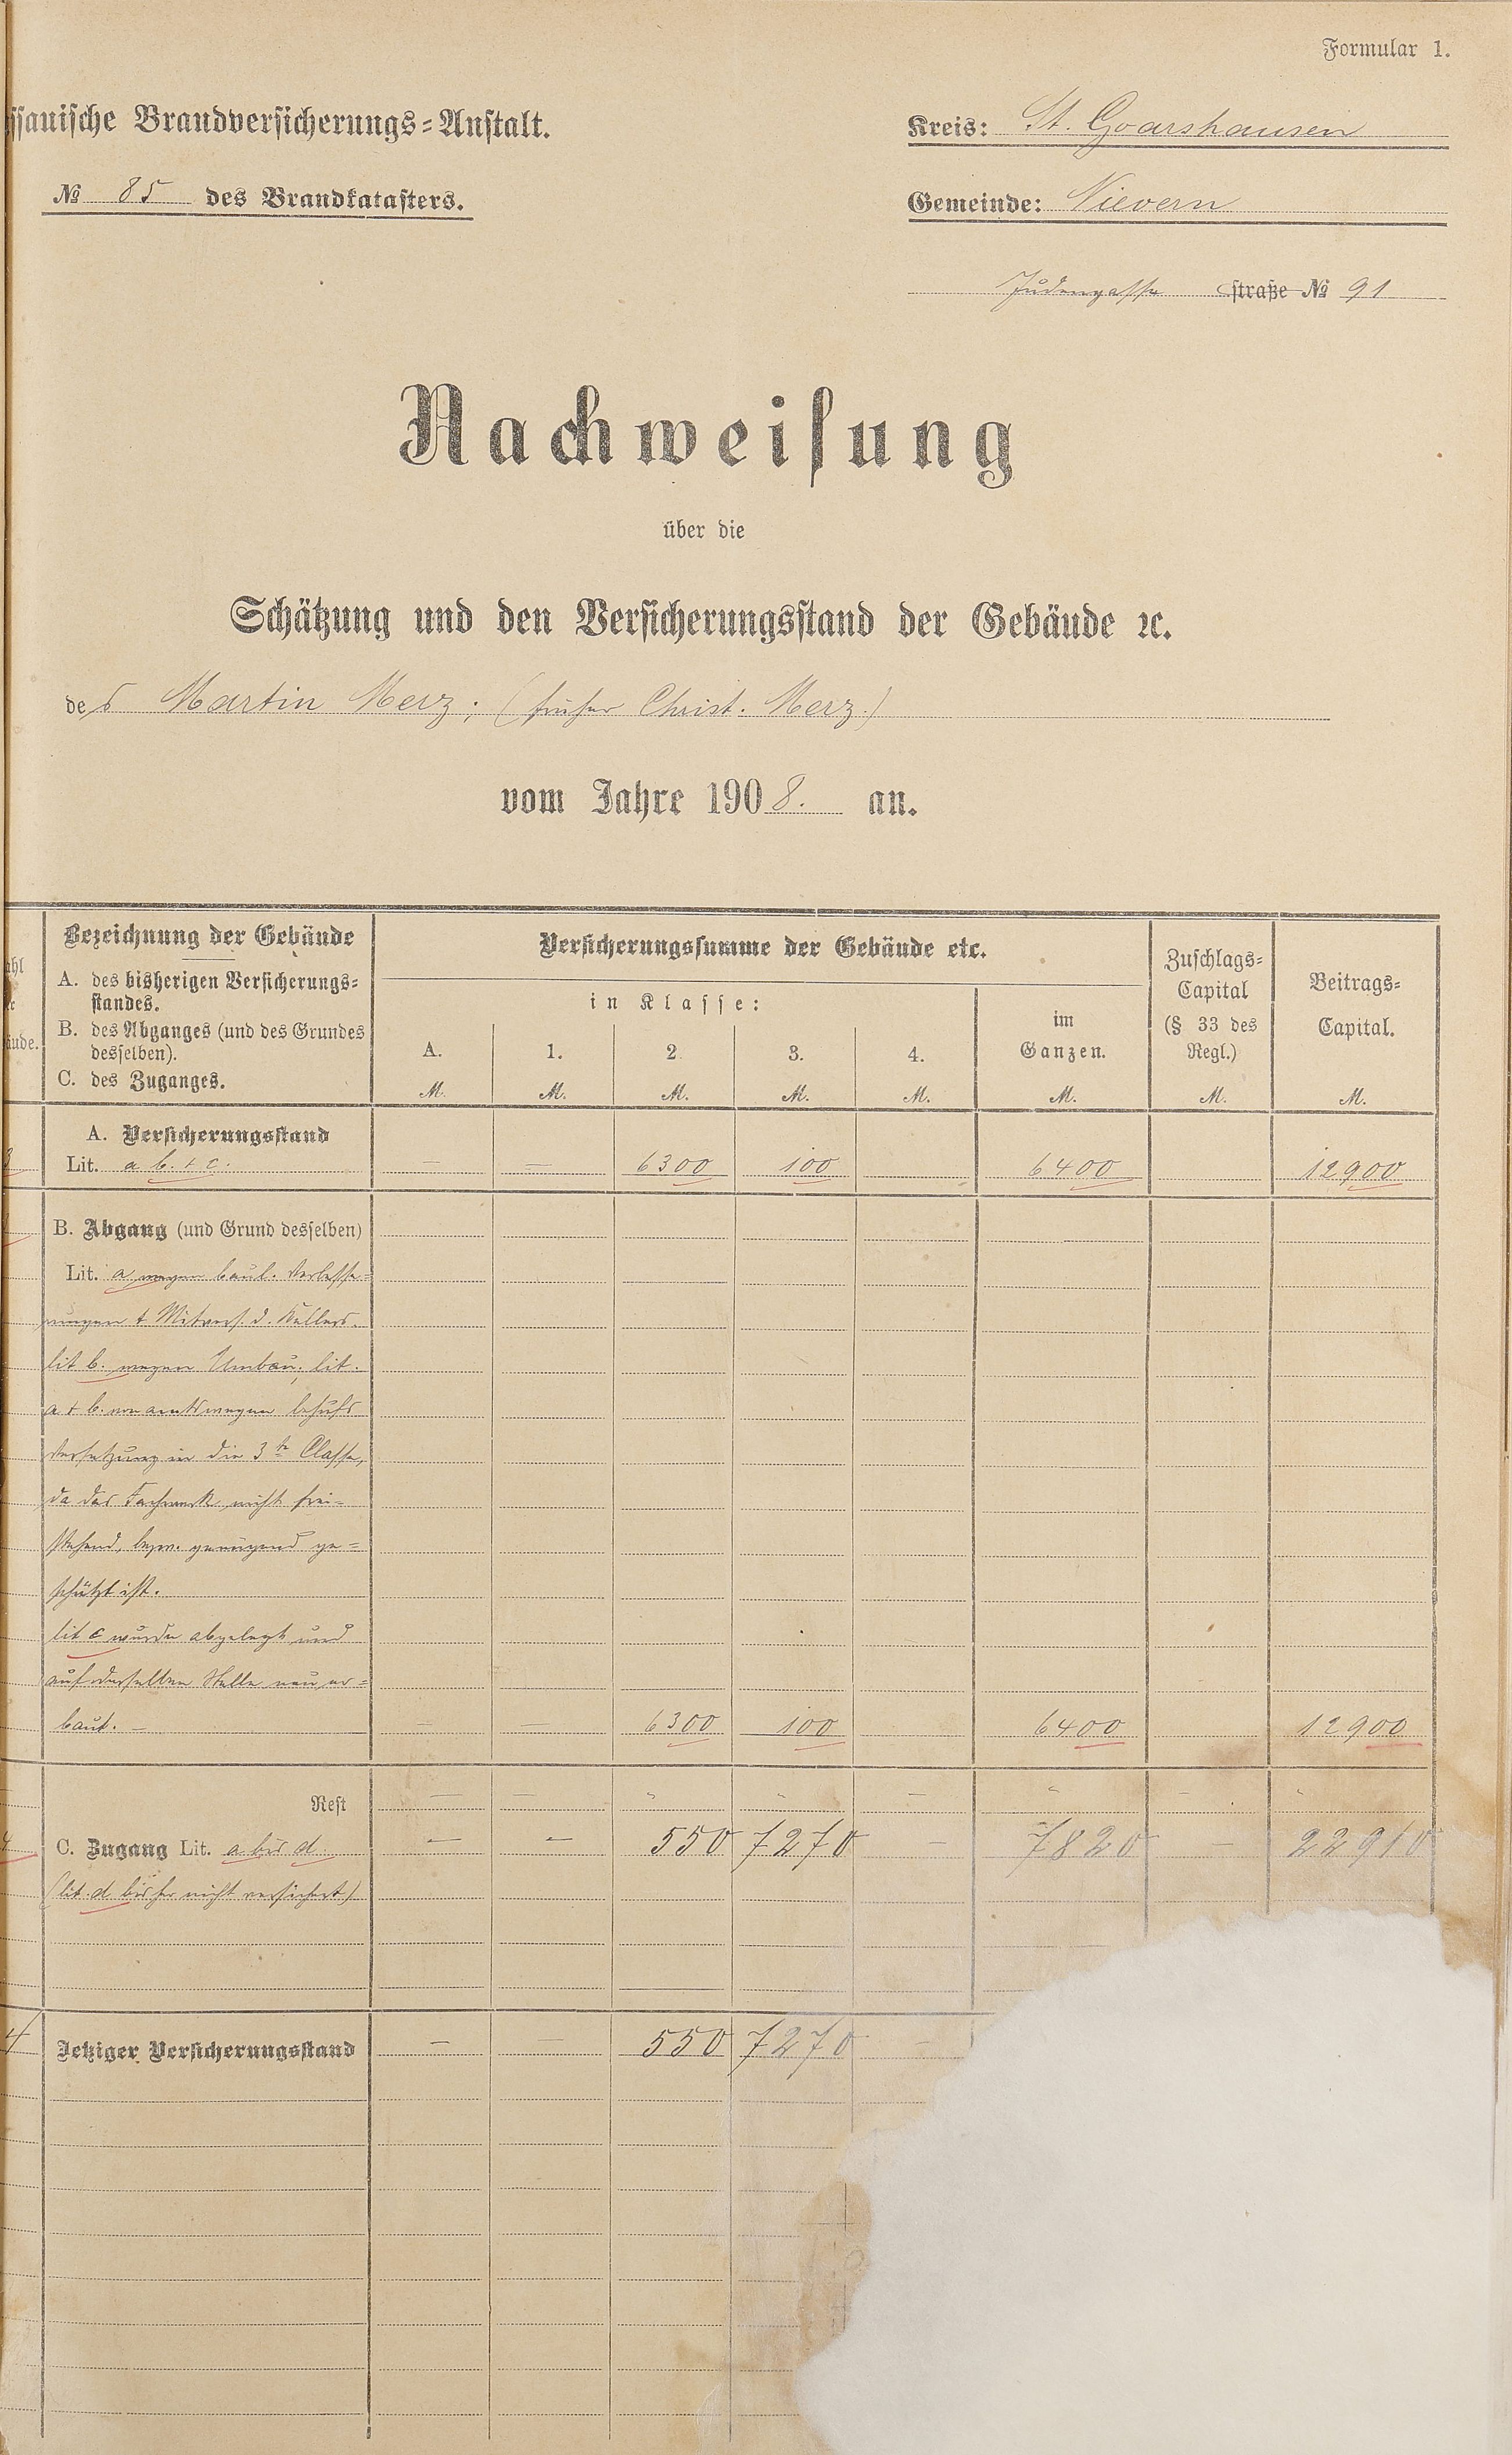 Formular 1.
ssauische Brandversicherungs-Anstalt.
Kreis: St. Goarshausen
№ 85 des Brandkatasters.
Gemeinde: Nievern
Judengasse straße № 91
Nachweisung
über die
Schätzung und den Versicherungsstand der Gebäude ꝛc.
des Martin Merz; (früher Christ. Merz.)
vom Jahre 1908. an.
Bezeichnung der Gebäude
A. des bisherigen Versicherungs-
standes.
B. des Abganges (und des Grundes
desselben).
C. des Zuganges.
Versicherungssumme der Gebäude etc.
in Klasse:
A. 1. 2. 3. 4.
im
Ganzen.
Zuschlags-
Capital
(§ 33 des
Regl.)
Beitrags-
Capital.
M. M. M. M. M. M. M. M.
A. Versicherungsstand
Lit. a b. + c. — — 6300 100 6400 12900
B. Abgang (und Grund desselben)
Lit. a wegen baul. Verbesse-
rungen + Mitvers. d. Kellers.
lit b. wegen Umbau; lit.
a + b. von amtswegen behufs
Versetzung in die 3te Classe,
da das Fachwerk nicht frei-
stehend, bezw. genügend ge-
schützt ist.
lit c wurde abgelegt und
auf derselben Stelle neu er-
baut. — — — 6300 100 6400 12900
Rest — — „ „ — „ — „
C. Zugang Lit. a bis d. — — 550 7270 — 7820 — 22910
(lit. d bisher nicht versichert)
4 Jetziger Versicherungsstand — — 550 7270 —